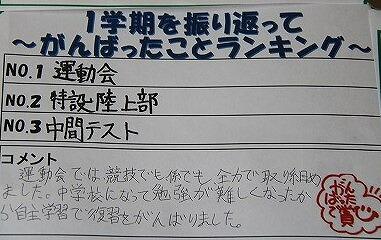 1学期を振り返って
～がんばったことランキング～
NO.1 運動会
NO.2 特設陸上部
NO.3 中間テスト
コメント
運動会では競技でも係でも、全力で取り組め
ました。中学校になって勉強が難しくなったか
ら自主学習で復習をがんばりました。
がん
ばった
で賞